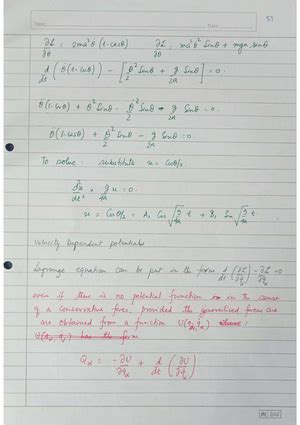 Topic
Date
51
∂L/∂θ̇ = 2ma²θ̇ (1-cosθ)    ∂L/∂θ = ma²θ̇² sinθ + mga sinθ
d/dt (θ̇(1-cosθ)) - [θ̇²/2 sinθ + g/2a sinθ] = 0.
θ̈(1-cosθ) + θ̇² sinθ - θ̇²/2 sinθ - g/2a sinθ = 0.
θ̈(1-cosθ) + θ̇²/2 sinθ - g/2a sinθ = 0.
To solve: substitute u = cosθ/2
d²u/dt² + g/4a u = 0.
u = cosθ/2 = A, cos √g/4a t + B, sin √g/4a t
Velocity dependent potentials
Lagrange equation can be put in the form d/dt (∂L/∂q̇α) - ∂L/∂qα = 0
even if there is no potential function in the sense
of a conservative force, provided the generalised forces are
are obtained from a function U(qα, q̇α)
U(qα, q̇α) has the form
Qα = -∂U/∂qα + d/dt (∂U/∂q̇α)